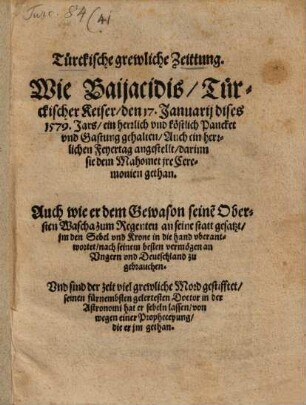 Türckische grewliche Zeittung.
Wie Baijacidis/ Tür-
ckischer Keiser/ den 17. Januarij dises
1579. Jars/ ein herrlich vnd köstlich Pancket
vnd Gastung gehalten/ Auch ein herr-
lichen Feyertag angestellt/ darinn
sie dem Mahomet jre Cere-
monien gethan.
Auch wie er dem Gewason seinē Ober-
sten Wascha zum Regenten an seine statt gesatzt/
jm den Sebel vnd Krone in die hand vberant-
wortet/ nach seinem besten vermögen an
Vngern vnd Deutschland zu
gebrauchen.
Vnd sind der zeit viel grewliche Mord gestifftet/
seinen fürnembsten gelertesten Doctor in der
Astronomi hat er sebeln lassen/ von
wegen einer Propheceyung/
die er jm gethan.